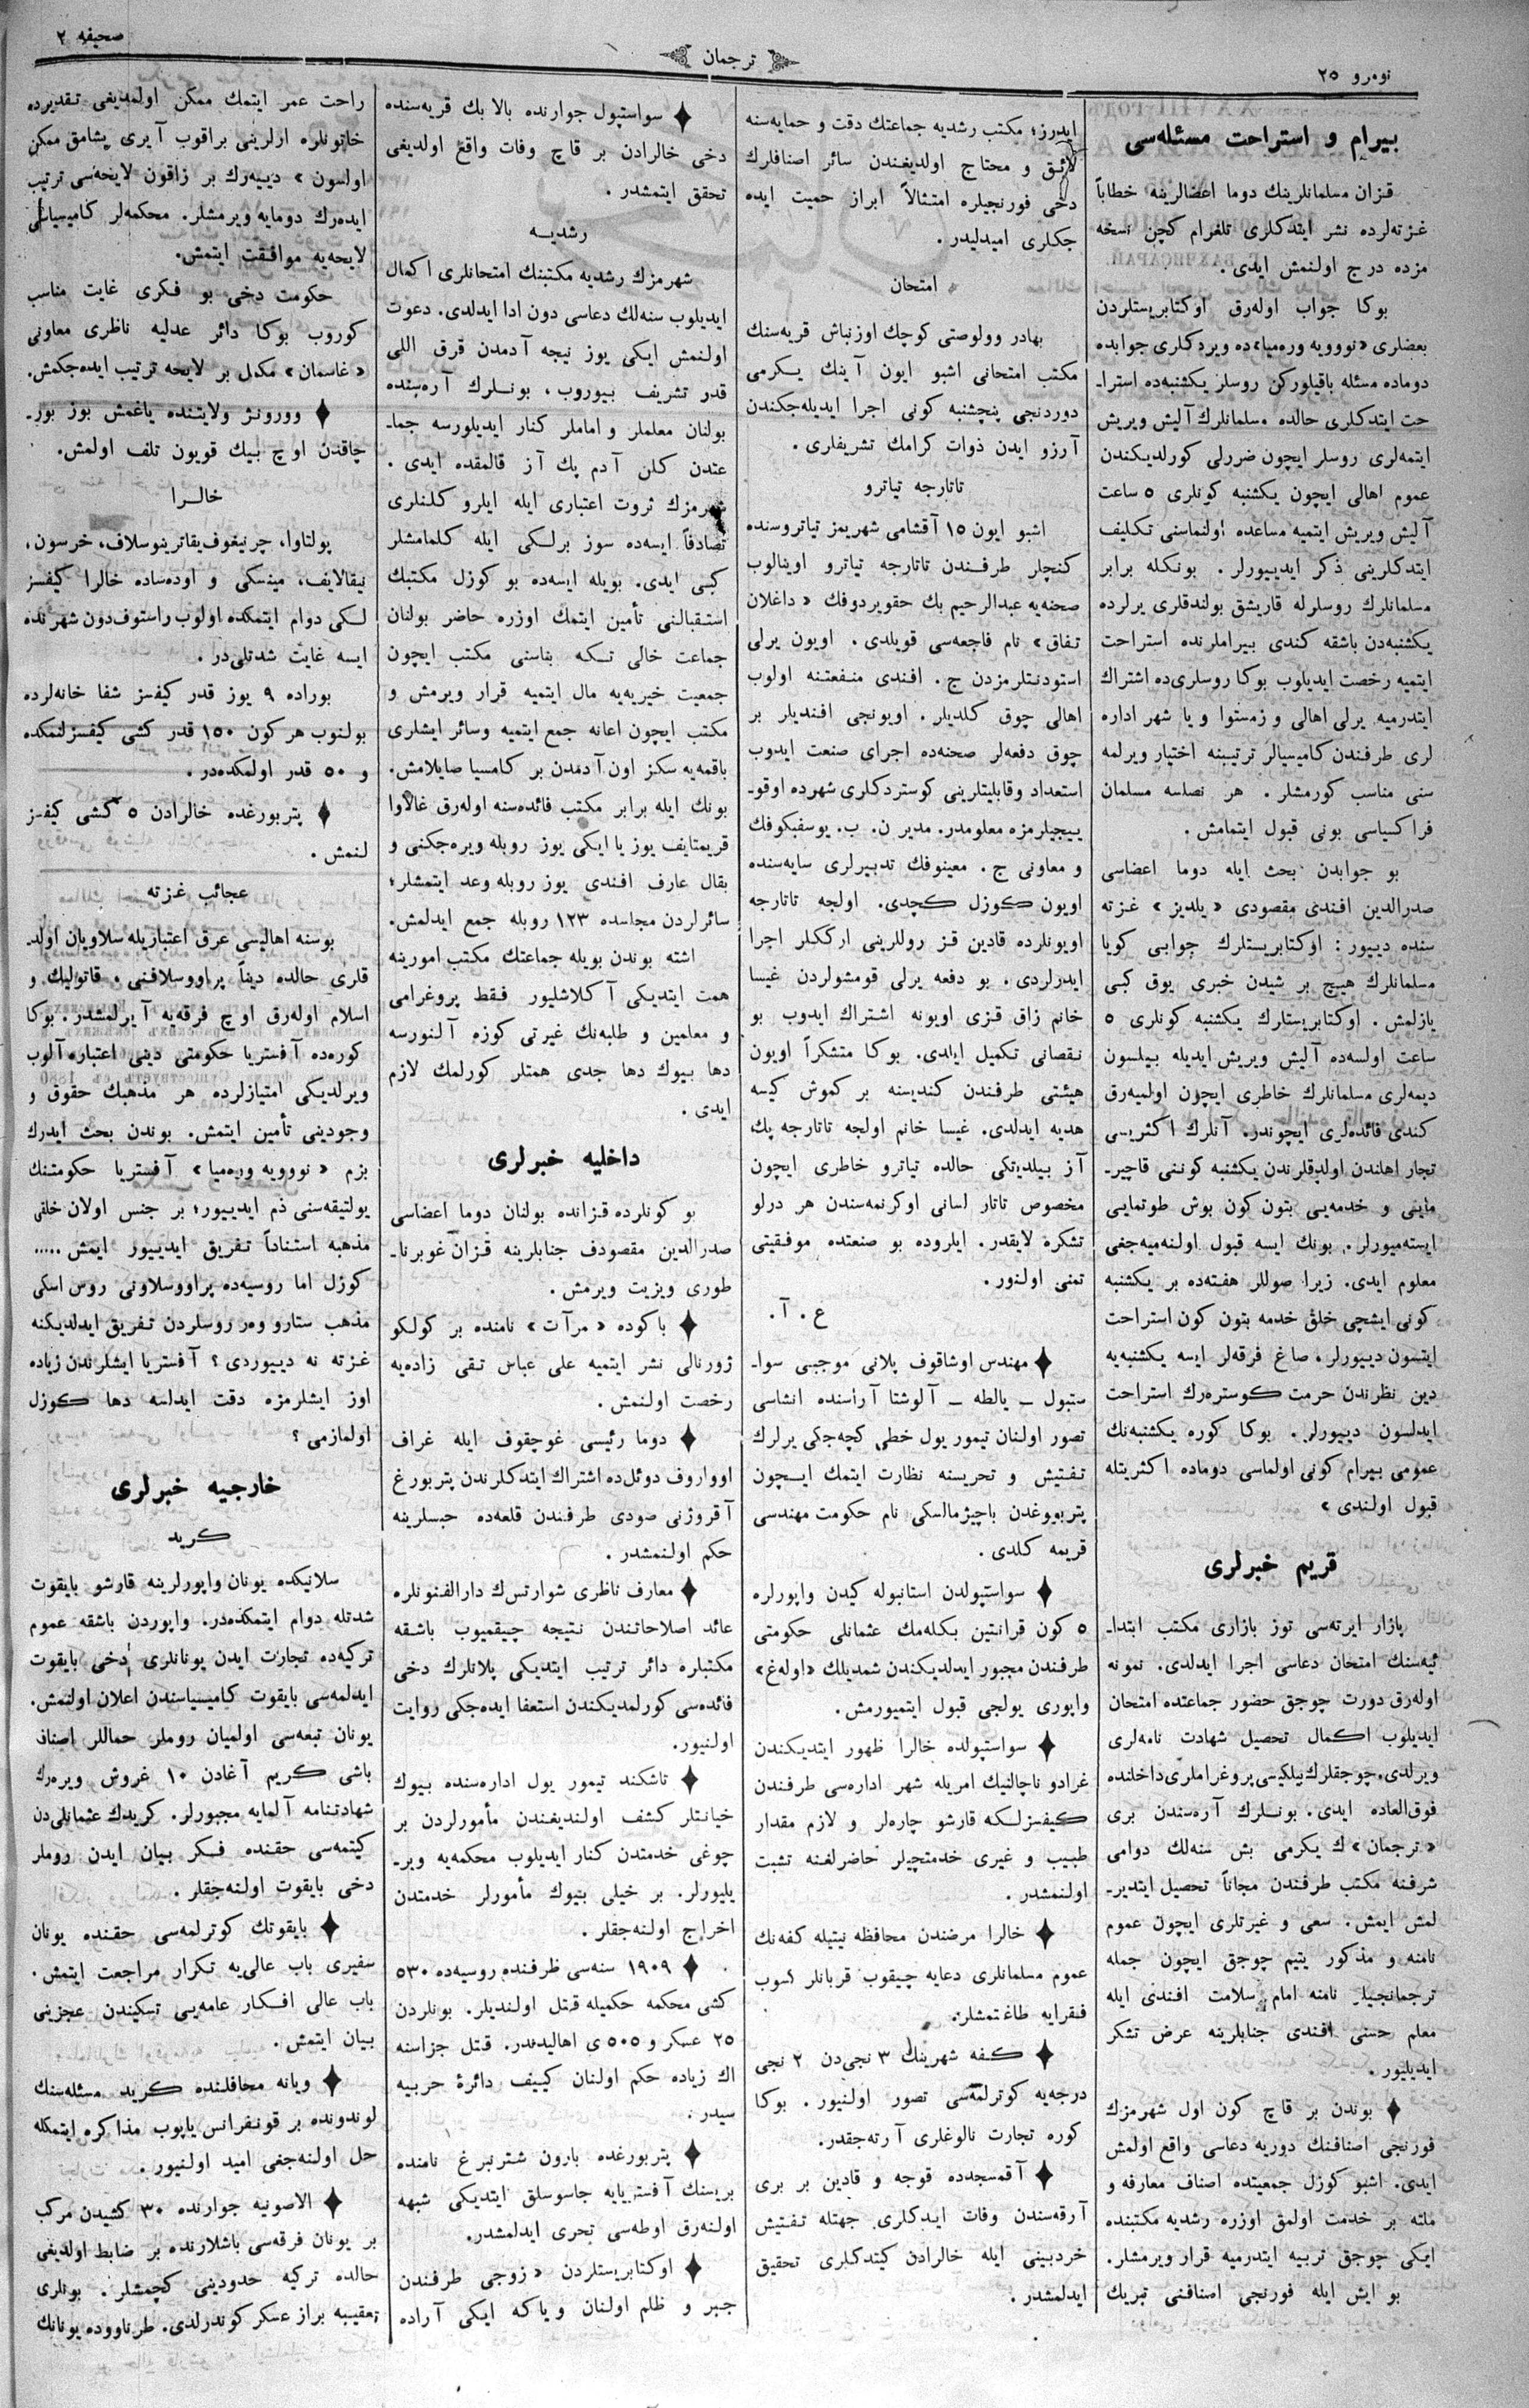 صحیفه ۲
ترجمان
نومرو ۲۵
بیرام و استراحت مسئله‌سی
قزان مسلمانلرینك دوما اعضالرینه خطاباً
غزته‌لرده نشر ایتدكلری تلغرام كچن نسخه
مزده درج اولنمش ایدی.
بوكا جواب اوله‌رق اوكتابریستلردن
بعضلری «نوویه وره‌میا»ده ویردكلری جوابده
دوماده مسئله باقیلوركن روسلر یكشنبه‌ده استرا-
حت ایتدكلری حالده مسلمانلرك آلیش ویریش
ایتمه‌لری روسلر ایچون ضررلی كورلدیكندن
عموم اهالی ایچون یكشنبه كونلری ۵ ساعت
آلیش ویریش ایتمیه مساعده اولنماسنی تكلیف
ایتدكلرینی ذكر ایدییورلر. بونكله برابر
مسلمانلرك روسلرله قاریشق بولندقلری یرلرده
یكشنبه‌دن باشقه كندی بیراملرنده استراحت
ایتمیه رخصت ایدیلوب بوكا روسلری‌ده اشتراك
ایتدرمیه یرلی اهالی و زمستوا و یا شهر اداره
لری طرفندن كامیسیالر ترتیبنه اختیار ویرلمه
سنی مناسب كورمشلر. هر نصلسه مسلمان
فراكسیاسی بونی قبول ایتمامش.
بو جوابدن بحث ایله دوما اعضاسی
صدرالدین افندی مقصودی «یلدیز» غزته
سنده دییور: اوكتابریستلرك جوابی كویا
مسلمانلرك هیچ بر شیدن خبری یوق كبی
یازلمش. اوكتابریستلرك یكشنبه كونلری ۵
ساعت اولسه‌ده آلیش ویریش ایدیله بیلسون
دیمه‌لری مسلمانلرك خاطری ایچون اولمیه‌رق
كندی فائده‌لری ایچوندر. آنلرك اكثریسی
تجار اهلندن اولدقلرندن یكشنبه كوننی قاچیر-
مایی و خدمه‌یی بتون كون بوش طوتمایی
ایسته‌میورلر. بونك ایسه قبول اولنه‌میه‌جغی
معلوم ایدی. زیرا صوللر هفته‌ده بر یكشنبه
كونی ایشچی خلق خدمه بتون كون استراحت
ایتسون دییورلر، صاغ فرقه‌لر ایسه یكشنبه‌یه
دین نظرندن حرمت كوستره‌رك استراحت
ایدلسون دییورلر. بوكا كوره یكشنبه‌نك
عمومی بیرام كونی اولماسی دوماده اكثریتله
قبول اولندی»
قریم خبرلری
پازار ایرته‌سی توز بازاری مكتب ابتدا-
ئیه‌سنك امتحان دعاسی اجرا ایدلدی. نمونه
اوله‌رق دورت چوجق حضور جماعتده امتحان
ایدیلوب اكمال تحصیل شهادت نامه‌لری
ویرلدی. چوجقلرك بیلكیسی پروغراملری داخلنده
فوق‌العاده ایدی. بونلرك آره‌سندن بری
«ترجمان»ك یكرمی بش سنه‌لك دوامی
شرفنه مكتب طرفندن مجاناً تحصیل ایتدیر-
لمش ایمش. سعی و غیرتلری ایچون عموم
نامنه و مذكور یتیم چوجق ایچون جمله
ترجمانجیلر نامنه امام سلامت افندی ایله
معلم حسنی افندی جنابلرینه عرض تشكر
ایدیلیور.
بوندن بر قاچ كون اول شهرمزك
فورنجی اصنافنك دوریه دعاسی واقع اولمش
ایدی. اشبو كوزل جمعیتده اصناف معارفه و
ملته بر خدمت اولمق اوزره رشدیه مكتبنده
ایكی چوجق تربیه ایتدرمیه قرار ویرمشلر.
بو ایش ایله فورنجی اصنافنی تبریك
ایدرز؛ مكتب رشدیه جماعتك دقت و حمایه‌سنه
لائق و محتاج اولدیغندن سائر اصنافلرك
دخی فورنجیلره امتثالاً ابراز حمیت ایده
جكلری امیدلیدر.
امتحان
بهادر وولوصتی كوچك اوزنباش قریه‌سنك
مكتب امتحانی اشبو ایون آینك یكرمی
دوردنجی پنجشنبه كونی اجرا ایدیله‌جكندن
آرزو ایدن ذوات كرامك تشریفلری.
تاتارجه تیاترو
اشبو ایون ۱۵ آقشامی شهریمز تیاتروسنده
كنجلر طرفندن تاتارجه تیاترو اوینالوب
صحنه‌یه عبدالرحیم بك حقویردوفك «داغلان
تفاق» نام فاجعه‌سی قویلدی. اویون یرلی
استودنتلرمزدن ج. افندی منفعتنه اولوب
اهالی چوق كلدیلر. اویونجی افندیلر بر
چوق دفعه‌لر صحنه‌ده اجرای صنعت ایدوب
استعداد وقابلیتلرینی كوستردكلری شهرده اوقو-
ییجیلرمزه معلومدر. مدیر ن. ب. یوسفیكوفك
و معاونی ج. معینوفك تدبیرلری سایه‌سنده
اویون كوزل كچدی. اولجه تاتارجه
اویونلرده قادین قز روللرینی ارككلر اجرا
ایدرلردی. بو دفعه یرلی قومشولردن غیسا
خانم زاق قزی اویونه اشتراك ایدوب بو
نقصانی تكمیل ایلدی. بوكا متشكراً اویون
هیئتی طرفندن كندیسنه بر كموش كیسه
هدیه ایدلدی. غیسا خانم اولجه تاتارجه پك
آز بیلدیكی حالده تیاترو خاطری ایچون
مخصوص تاتار لسانی اوكرنمه‌سندن هر درلو
تشكره لایقدر. ایلروده بو صنعتده موفقیتی
تمنی اولنور.
ع. آ.
مهندس اوشاقوف پلانی موجبی سوا-
ستپول ـ یالطه ـ آلوشتا آراسنده انشاسی
تصور اولنان تیمور یول خطی كچه‌جكی یرلرك
تفتیش و تحریسنه نظارت ایتمك ایچون
پتربوروغدن باچیژمالسكی نام حكومت مهندسی
قریمه كلدی.
سواستپولدن استانبوله كیدن واپورلره
۵ كون قرانتین بكله‌مك عثمانلی حكومتی
طرفندن مجبور ایدلدیكندن شمدیلك «اوله‌غ»
واپوری یولجی قبول ایتمیورمش.
سواستپولده خالرا ظهور ایتدیكندن
غرادو ناچالنیك امریله شهر اداره‌سی طرفندن
كیفسزلكه قارشو چاره‌لر و لازم مقدار
طبیب و غیری خدمتچیلر حاضرلغنه تشبث
اولنمشدر.
خالرا مرضندن محافظه نیتیله كفه‌نك
عموم مسلمانلری دعایه چیقوب قربانلر كسوب
فقرایه طاغتمشلر.
كفه شهرینك ۳ نجی‌دن ۲ نجی
درجه‌یه كوترلمه‌سی تصور اولنیور. بوكا
كوره تجارت نالوغلری آرته‌جقدر.
آقمسجدده قوجه و قادین بر بری
آرقه‌سندن وفات ایدكلری جهتله تفتیش
خردبینی ایله خالرادن كیتدكلری تحقیق
ایدلمشدر.
سواستپول جوارنده بالا بك قریه‌سنده
دخی خالرادن بر قاچ وفات واقع اولدیغی
تحقق ایتمشدر.
رشدیه
شهرمزك رشدیه مكتبنك امتحانلری اكمال
ایدیلوب سنه‌لك دعاسی دون ادا ایدلدی. دعوت
اولنمش ایكی یوز نیجه آدمدن قرق اللی
قدر تشریف بیوروب، بونلرك آره‌سنده
بولنان معلملر و اماملر كنار ایدیلورسه جما-
عتدن كلن آدم پك آز قالمقده ایدی.
شهرمزك ثروت اعتباری ایله ایلرو كلنلری
تصادفاً ایسه‌ده سوز برلكی ایله كلمامشلر
كبی ایدی. بویله ایسه‌ده بو كوزل مكتبك
استقبالنی تأمین ایتمك اوزره حاضر بولنان
جماعت خالی تكه بناسنی مكتب ایچون
جمعیت خیریه‌یه مال ایتمیه قرار ویرمش و
مكتب ایچون اعانه جمع ایتمیه وسائر ایشلری
باقمه‌یه سكز اون آدمدن بر كامسیا صایلامش.
بونك ایله برابر مكتب فائده‌سنه اوله‌رق غالاوا
قریمتایف یوز یا ایكی یوز روبله ویره‌جكنی و
بقال عارف افندی یوز روبله وعد ایتمشلر؛
سائرلردن مجلسده ۱۲۳ روبله جمع ایدلمش.
اشته بوندن بویله جماعتك مكتب امورینه
همت ایتدیكی آكلاشلیور فقط پروغرامی
و معلمین و طلبه‌نك غیرتی كوزه آلنورسه
دها بیوك دها جدی همتلر كورلمك لازم
ایدی.
داخلیه خبرلری
بو كونلرده قزانده بولنان دوما اعضاسی
صدرالدین مقصودف جنابلرینه قزان غوبرنا-
طوری ویزیت ویرمش.
باكوده «مرآت» نامنده بر كولكو
ژورنالی نشر ایتمیه علی عباس تقی زاده‌یه
رخصت اولنمش.
دوما رئیسی غوچقوف ایله غراف
اوواروف دوئل‌ده اشتراك ایتدكلرندن پتربورغ
آقروژنی صودی طرفندن قلعه‌ده حبسلرینه
حكم اولنمشدر.
معارف ناظری شوارتس‌ك دارالفنونلره
عائد اصلاحاتندن نتیجه چیقمیوب باشقه
مكتبلره دائر ترتیب ایتدیكی پلانلرك دخی
فائده‌سی كورلمدیكندن استعفا ایده‌جكی روایت
اولنیور.
تاشكند تیمور یول اداره‌سنده بیوك
خیانتلر كشف اولندیغندن مأمورلردن بر
چوغی خدمتدن كنار ایدیلوب محكمه‌یه ویر-
یلیورلر. بر خیلی بیوك مأمورلر خدمتدن
اخراج اولنه‌جقلر.
۱۹۰۹ سنه‌سی ظرفنده روسیه‌ده ۵۳۰
كشی محكمه حكمیله قتل اولندیلر. بونلردن
۲۵ عسكر و ۵۰۵ ی اهالیدندر. قتل جزاسنه
اك زیاده حكم اولنان كییف دائرۀ حربیه
سیدر.
پتربورغده بارون شترنبرغ نامنده
بریسنك آفستریایه جاسوسلق ایتدیكی شبهه
اولنه‌رق اوطه‌سی تحری ایدلمشدر.
اوكتابریستلردن «زوجی طرفندن
جبر و ظلم اولنان ویاكه ایكی آراده
راحت عمر ایتمك ممكن اولمدیغی تقدیرده
خاتونلره ارلرینی براقوب آیری یشامق ممكن
اولسون» دییه‌رك بر زاقون لایحه‌سی ترتیب
ایده‌رك دومایه ویرمشلر. محكمه‌لر كامیسیاسی
لایحه‌یه موافقت ایتمش.
حكومت دخی بو فكری غایت مناسب
كوروب بوكا دائر عدلیه ناظری معاونی
«غاسمان» مكمل بر لایحه ترتیب ایده‌جكمش.
وورونژ ولایتنده یاغمش بوز بور-
چاقدن اوچ بیك قویون تلف اولمش.
خالرا
پولتاوا، چرنیغوف، یقاترینوسلاف، خرسون،
نیقالایف، مینسكی و اوده‌ساده خالرا كیفسز
لكی دوام ایتمكده اولوب راستوف‌دون شهرنده
ایسه غایت شدتلی‌در.
بوراده ۹ یوز قدر كیفسز شفا خانه‌لرده
بولنوب هر كون ۱۵۰ قدر كشی كیفسزلنمكده
و ۵۰ قدر اولمكده‌در.
پتربورغده خالرادن ۵ كشی كیفسز
لنمش.
عجائب غزته
بوسنه اهالیسی عرق اعتباریله سلاویان اولد-
قلری حالده دیناً پراووسلاونی، قاتولیك و
اسلام اوله‌رق اوچ فرقه‌یه آیرلمشدر. بوكا
كوره‌ده آفستریا حكومتی دینی اعتباره آلوب
ویرلدیكی امتیازلرده هر مذهبك حقوق و
وجودینی تأمین ایتمش. بوندن بحث ایدرك
بزم «نوویه وره‌میا» آفستریا حكومتنك
پولتیقه‌سنی ذم ایدییور؛ بر جنس اولان خلقی
مذهبه استناداً تفریق ایدییور ایمش .....
كوزل اما روسیه‌ده پراووسلاونی روس اسكی
مذهب ستارو وه‌ر روسلردن تفریق ایدلدیكنه
غزته نه دییوردی؟ آفستریا ایشلرندن زیاده
اوز ایشلرمزه دقت ایدلسه دها كوزل
اولمازمی؟
خارجیه خبرلری
كرید
سلانیكده یونان واپورلرینه قارشو بایقوت
شدتله دوام ایتمكده‌در. واپوردن باشقه عموم
تركیه‌ده تجارت ایدن یونانلری دخی بایقوت
ایدلمه‌سی بایقوت كامیسیاسندن اعلان اولنمش.
یونان تبعه‌سی اولمیان روملر حماللر اصناف
باشی كریم آغادن ۱۰ غروش ویره‌رك
شهادتنامه آلمایه مجبورلر. كریدك عثمانلی‌دن
كیتمه‌سی حقنده فكر بیان ایدن روملر
دخی بایقوت اولنه‌جقلر.
بایقوتك كوترلمه‌سی حقنده یونان
سفیری باب عالی‌یه تكرار مراجعت ایتمش.
باب عالی افكار عامه‌یی تسكیندن عجزینی
بیان ایتمش.
ویانه محافلنده كرید مسئله‌سنك
لوندونده بر قونفرانس یاپوب مذاكره ایتمكله
حل اولنه‌جغی امید اولنیور.
الاصونیه جوارنده ۳۰ كشیدن مركب
بر یونان فرقه‌سی باشلارنده بر ضابط اولدیغی
حالده تركیه حدودینی كچمشلر. بونلری
تعقیبه براز عسكر كوندرلدی. طرناووده یونانك